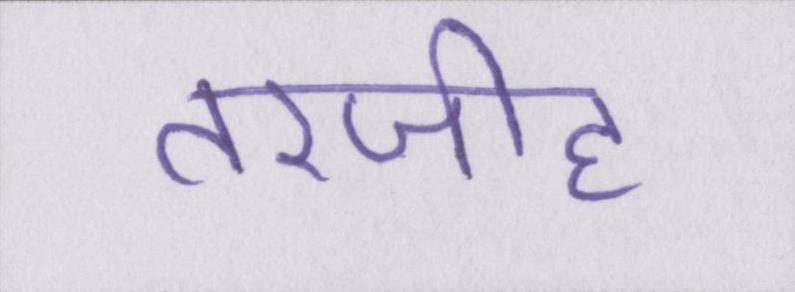 तरजीह